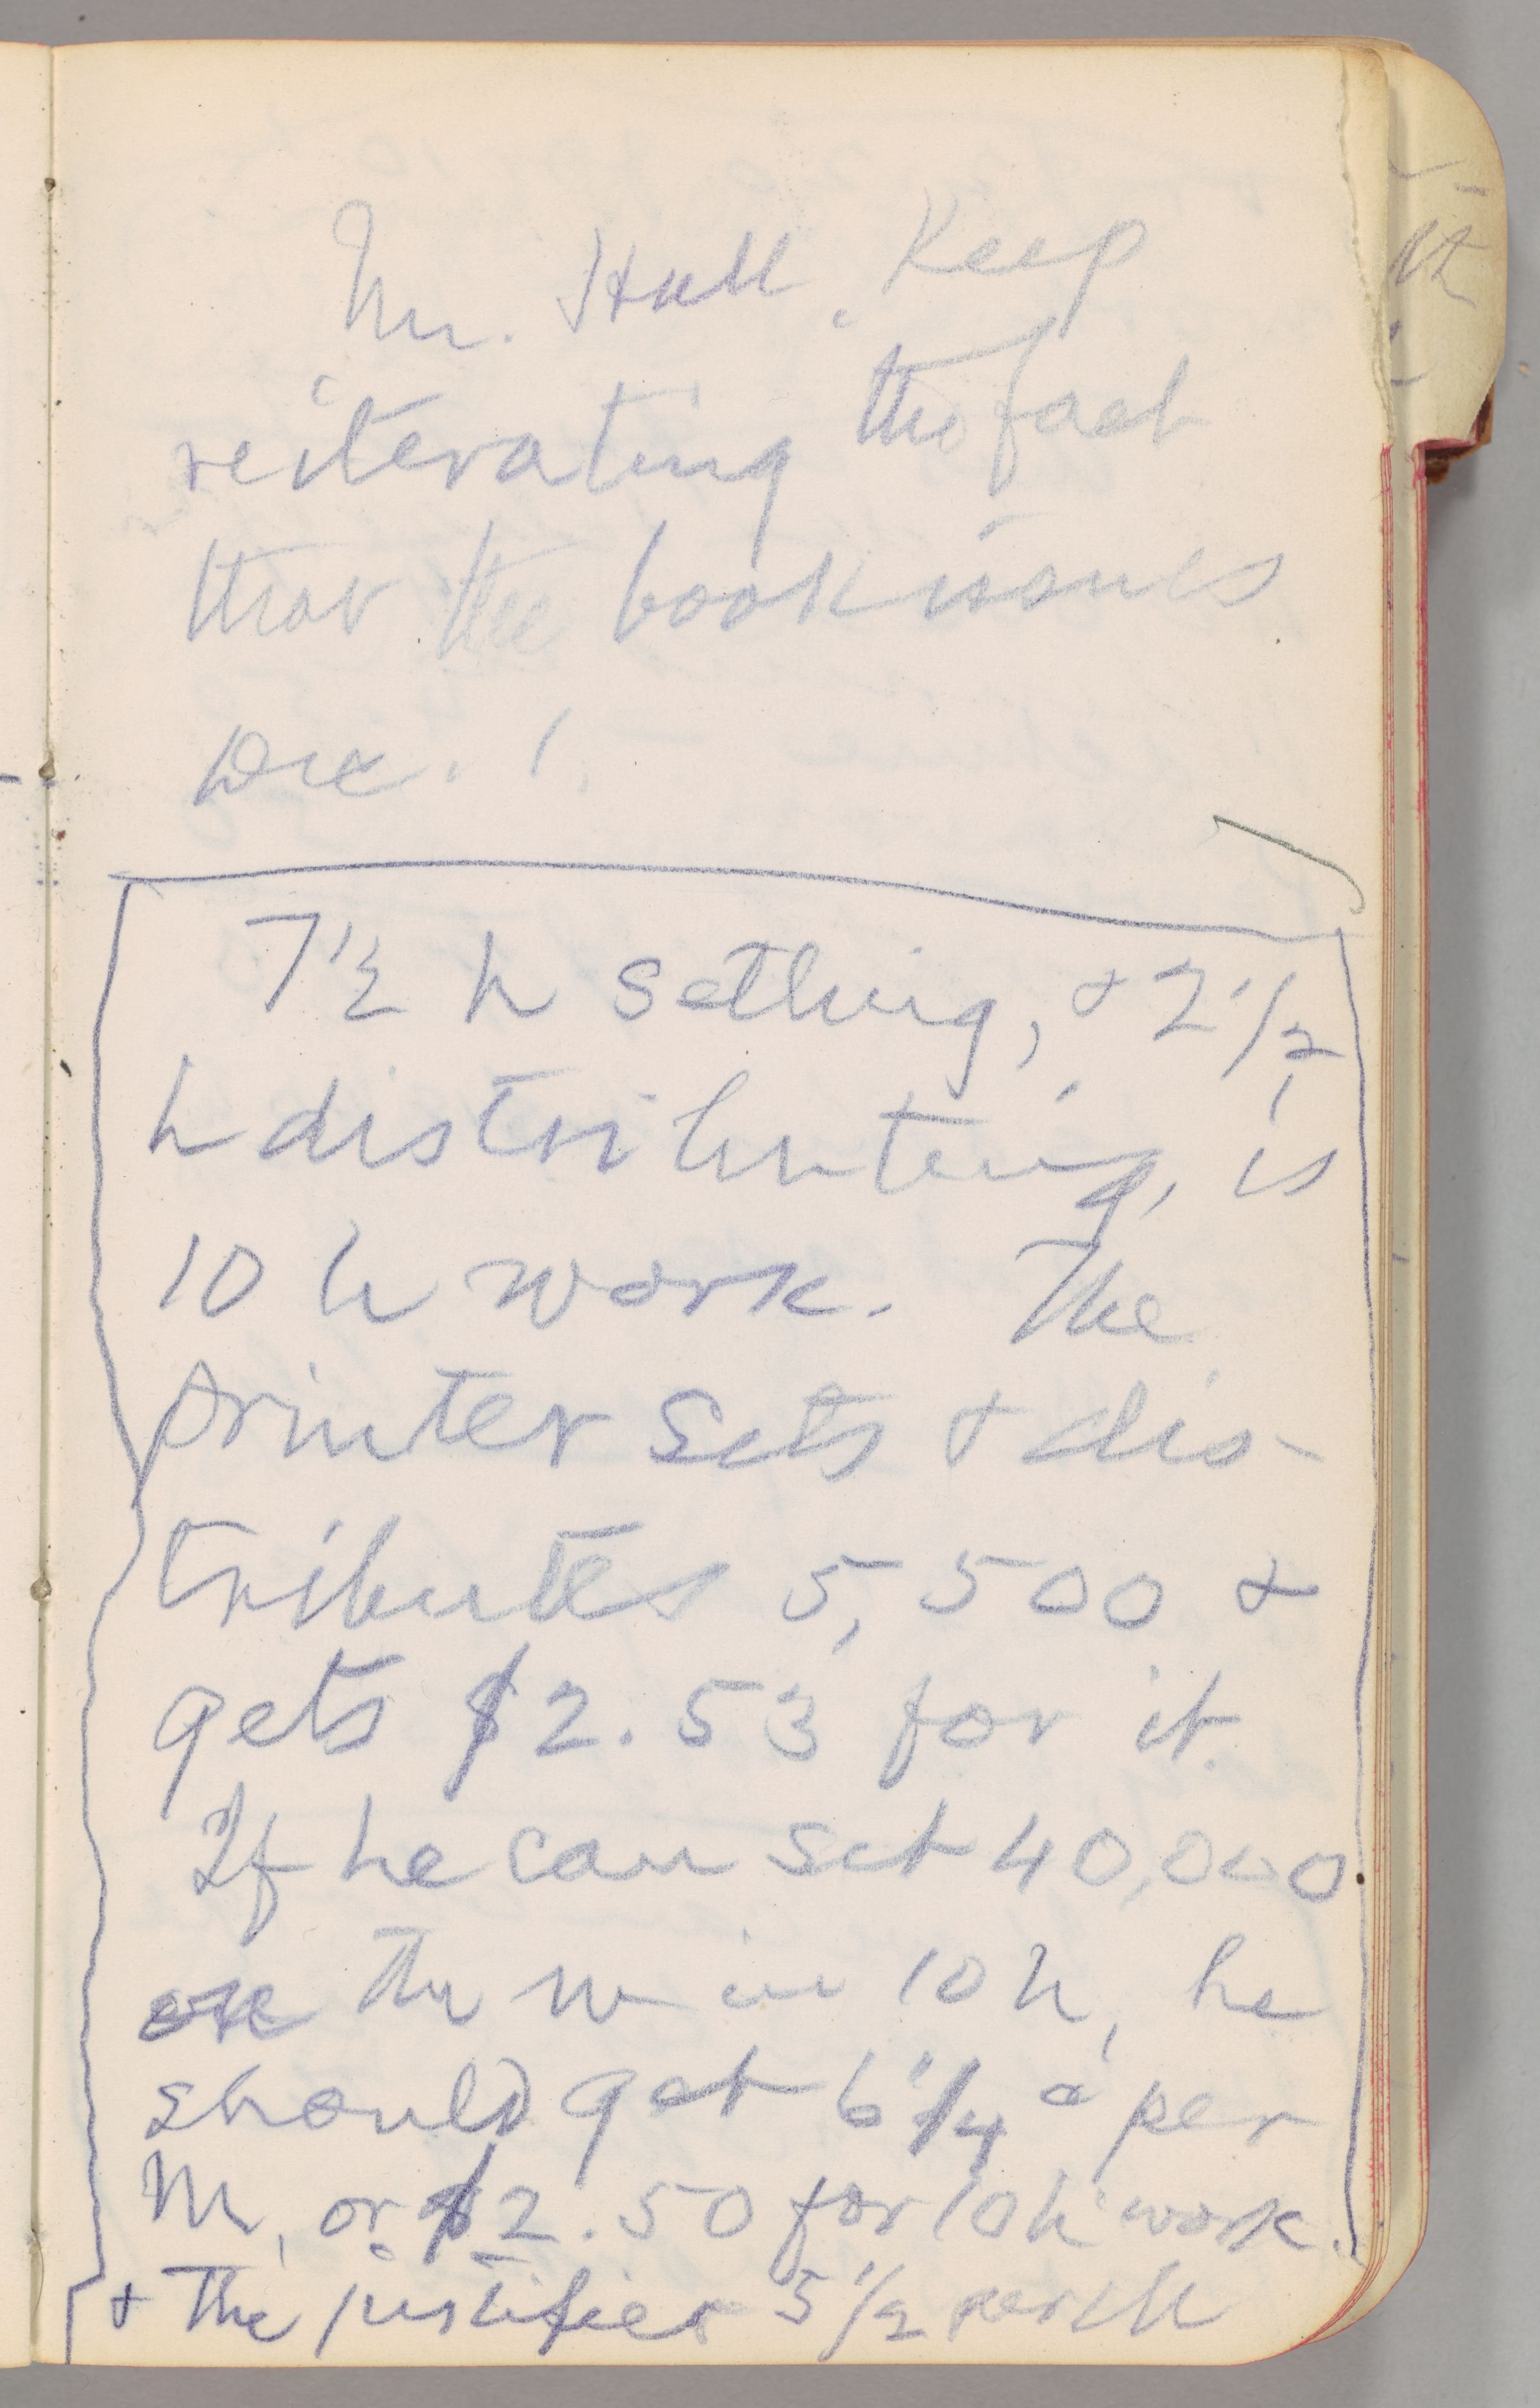 Mr. Hall. Keep
reiterating the fact
that the book issues
Dec. 1.
7 1/2 h setting, & 2 1/2
h distributing, is
10 h work. The
printer sets & dis-
tributes 5,500 &
gets $2.53 for it.
If he can set 40,000
on the m in 10 h, he
should get 6 1/4 c per
M, or $2.50 for 10 h work.
& the justifier 5 1/2 per M